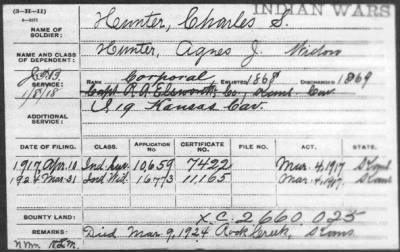 (3-III-11)
INDIAN WARS
NAME OF SOLDIER: Hunter, Charles S.
NAME AND CLASS OF DEPENDENT: Hunter, Agnes J. Widow
Corporal
SERVICE: Name ENLISTED 1868 DISCHARGED 1869
1/8/18 Capt. R. A. Ellsworth's Co., Cav
ADDITIONAL SERVICE: 19 Kansas Cav.
DATE OF FILING. CLASS. APPLICATION NO. CERTIFICATE NO. FILE NO. ACT. STATE.
1917 Apr. 10 Ind. Sur. 10,659 7422 Mar. 4, 1917
1924 Mar 31 Ind Wid. 16773 11,165 Mar. 4, 1917
BOUNTY LAND: XC. 2660 025
REMARKS: Died Mar. 9, 1924 Rock Creek Kans